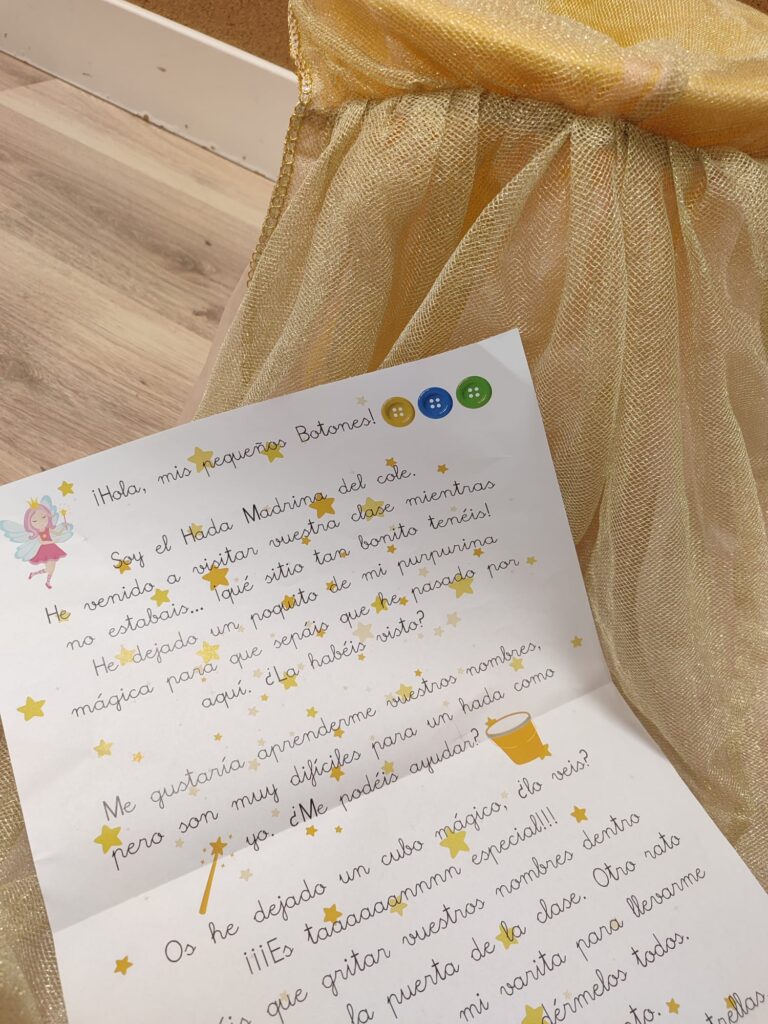 ¡Hola, mis pequeños Botones!
Soy el Hada Madrina del cole.
He venido a visitar vuestra clase mientras
no estabais... ¡qué sitio tan bonito tenéis!
He dejado un poquito de mi purpurina
mágica para que sepáis que he pasado por
aquí. ¿La habéis visto?
Me gustaría aprenderme vuestros nombres,
pero son muy difíciles para un hada como
yo. ¿Me podéis ayudar?
Os he dejado un cubo mágico, ¿lo veis?
¡¡¡Es taaaaaannnnn especial!!!
que gritar vuestros nombres dentro
la puerta de la clase. Otro rato
mi varita para llevarme
todos.